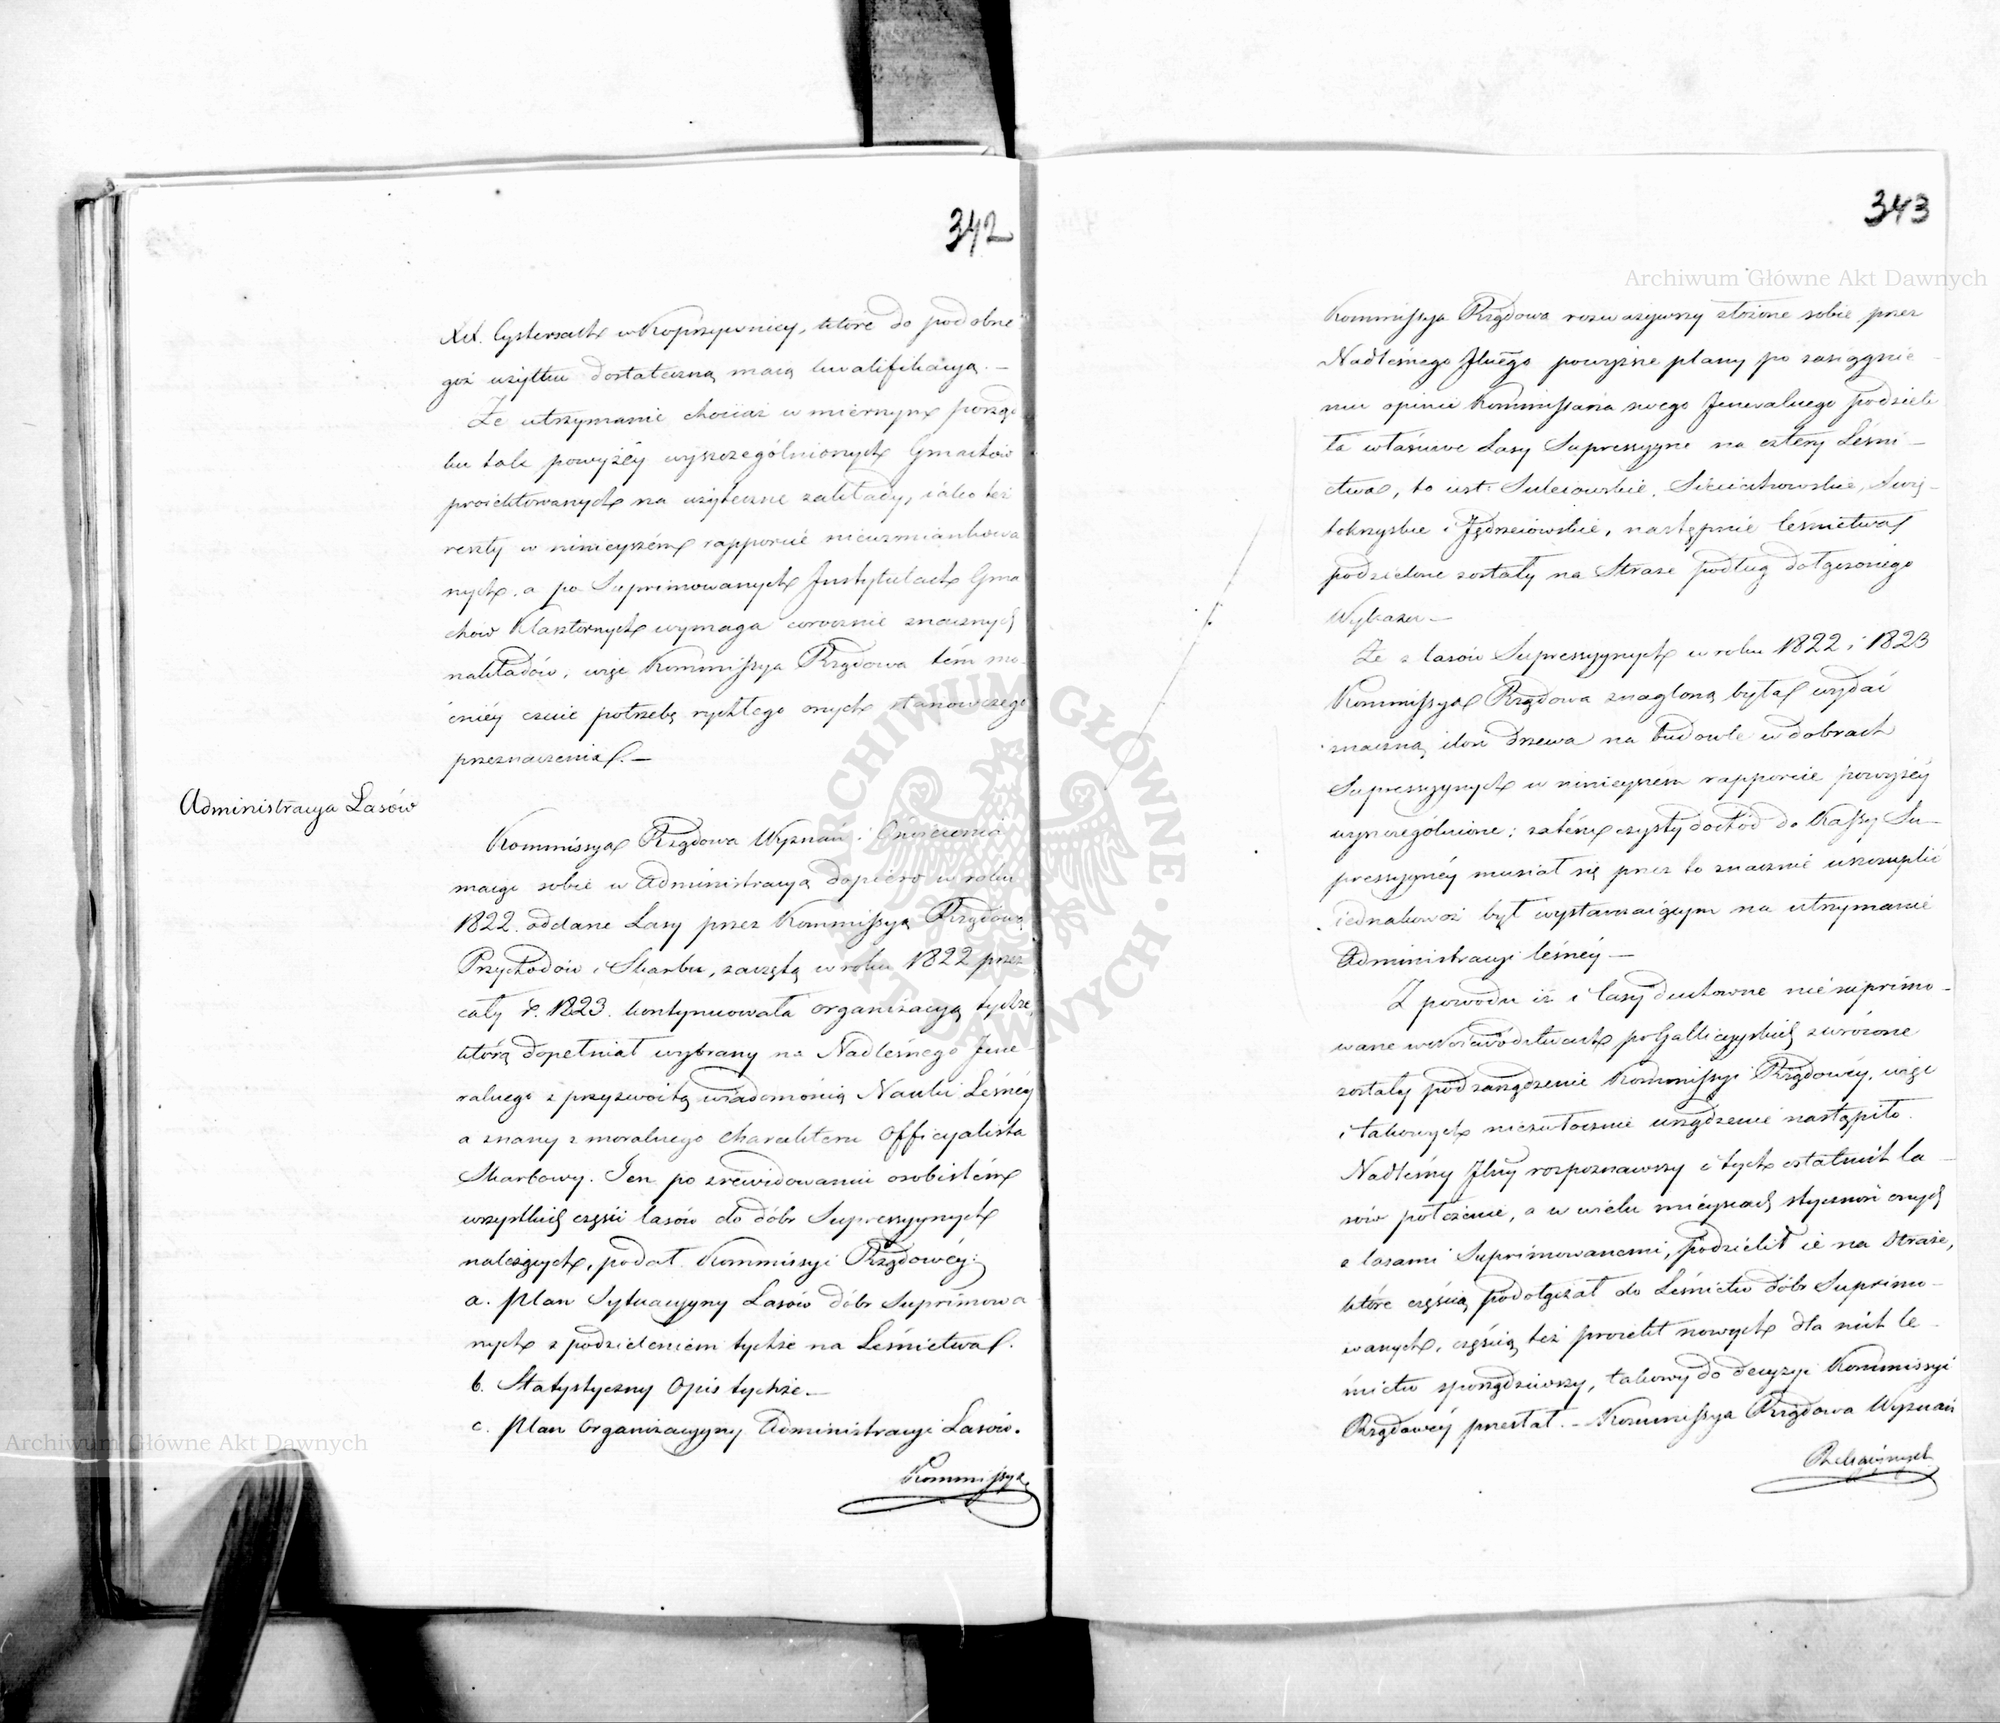 342
XX. Cystersach w Koprzywnicy, które do podobne
goż użytku dostateczną maią kwalifikacyą. —
Że utrzymanie chociaż w miernym porząd
ku tak powyżéy wyszczególnionych Gmachów
proiektowanych na użyteczne zakłady, iako też
reszty w ninieyszém rapporcie niewzmiankowa
nych, a po Suprimowanych Instytutach Gma
chów Klasztornych wymaga corocznie znacznych
nakładów, więc Kommissya Rządowa tém mo
cniéy czuie potrzebę rychłego onych stanowczego
przeznaczenia. —
Administracya Lasów
Kommissya Rządowa Wyznań i Oświecenia
maiąc sobie w Administracyą dopiero w roku
1822. oddane Lasy przez Kommissyą Rządową
Przychodów i Skarbu, zaczętą w roku 1822 przez
cały r. 1823. kontynuowała organizacyą tychże,
którą dopełniał wybrany na Nadleśnego Jene-
ralnego z przyzwoitą wiadomością Nauki Leśnéy
a znany z moralnego charakteru Officyalista
Skarbowy. Ten po zrewidowaniu osobistém
wszystkich części lasów do dóbr Supressyynych
należących, podał Kommissyi Rządowéy:
a. Plan Sytuacyyny Lasów dóbr Suprimowa
nych z podzieleniem tychże na Leśnictwa.
b. Statystyczny Opis tychże. —
c. Plan Organizacyyny Administracyi Lasów.
Kommissya
343
Kommissya Rządowa rozważywszy złożone sobie przez
Nadleśnego Jlnego powyższe plany po zasiągnie-
niu opinii Kommissarza swego Jeneralnego podzieli
ła właściwe Lasy Supressyyne na cztery Leśni-
ctwa, to iest: Suleiowskie, Sieciechowskie, Swię-
tokrzyskie i Jędrzeiowskie, następnie leśnictwa
podzielone zostały na Straże podług dołączonego
Wykazu —
Że z lasów Supressyynych w roku 1822 i 1823
Kommissya Rządowa znaglona była wydać
znaczną ilość drzewa na budowle w dobrach
Supressyynych w ninieyszém rapporcie powyżéy
wyszczególnione; zatém czysty dochód do Kassy Su-
pressyynéy musiał się przez to znacznie uszczuplić
iednakowoż był wystarczaiącym na utrzymanie
Administracyi leśnéy —
Z powodu iż i lasy duchowne niesuprimo-
wane w Woiewództwach poGallicyyskich zwrócone
zostały pod zarządzenie Kommissyi Rządowéy, więc
i takowych niezwłocznie urządzenie nastąpiło.
Nadleśny Jlny rozpoznawszy i tych ostatnich la-
sów położenie, a w wielu mieyscach styczność onych
z lasami Suprimowanemi, podzielił ie na Straże,
które częścią podołączał do Leśnictw dóbr Suprimo-
wanych, częścią też proiekt nowych dla nich le-
śnictw sporządziwszy, takowy do decyzyi Kommissyi
Rządowéy przesłał. — Kommissya Rządowa Wyznań
Archiwum Główne Akt Dawnych
Archiwum Główne Akt Dawnych
ARCHIWUM GŁÓWNE · AKT DAWNYCH ·